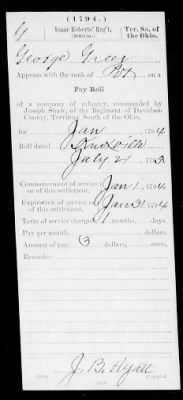 (1794.)
G Isaac Roberts' Reg't, Ter. So. of
the Ohio.
George Greer
Appears with the rank of Pvt on a
Pay Roll
of a company of infantry, commanded by
Joseph Shaw, of the Regiment of Davidson
County, Territory South of the Ohio,
for Jan , 1794
Roll dated Knoxville
July 21 , 179
Commencement of service
or of this settlement, Jan 1 , 1794
Expiration of service
of this settlement, Jan 31 , 1794
Term of service charged, 1 months, days.
Pay per month, dollars
Amount of pay, 3 dollars, cents.
Remarks:
J. B. Hyatt
Copyist.